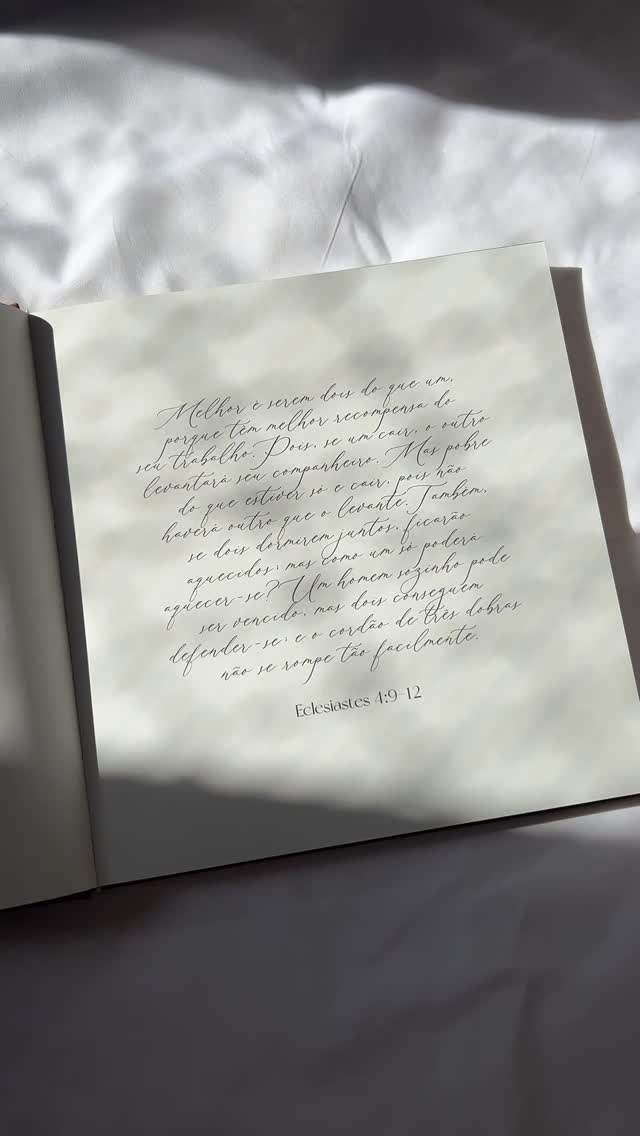 Melhor é serem dois do que um,
porque têm melhor recompensa do
seu trabalho. Pois, se um cair, o outro
levantará seu companheiro. Mas pobre
do que estiver só e cair, pois não
haverá outro que o levante. Também,
se dois dormirem juntos, ficarão
aquecidos; mas como um só poderá
aquecer-se? Um homem sozinho pode
ser vencido, mas dois conseguem
defender-se; e o cordão de três dobras
não se rompe tão facilmente.
Eclesiastes 4:9-12